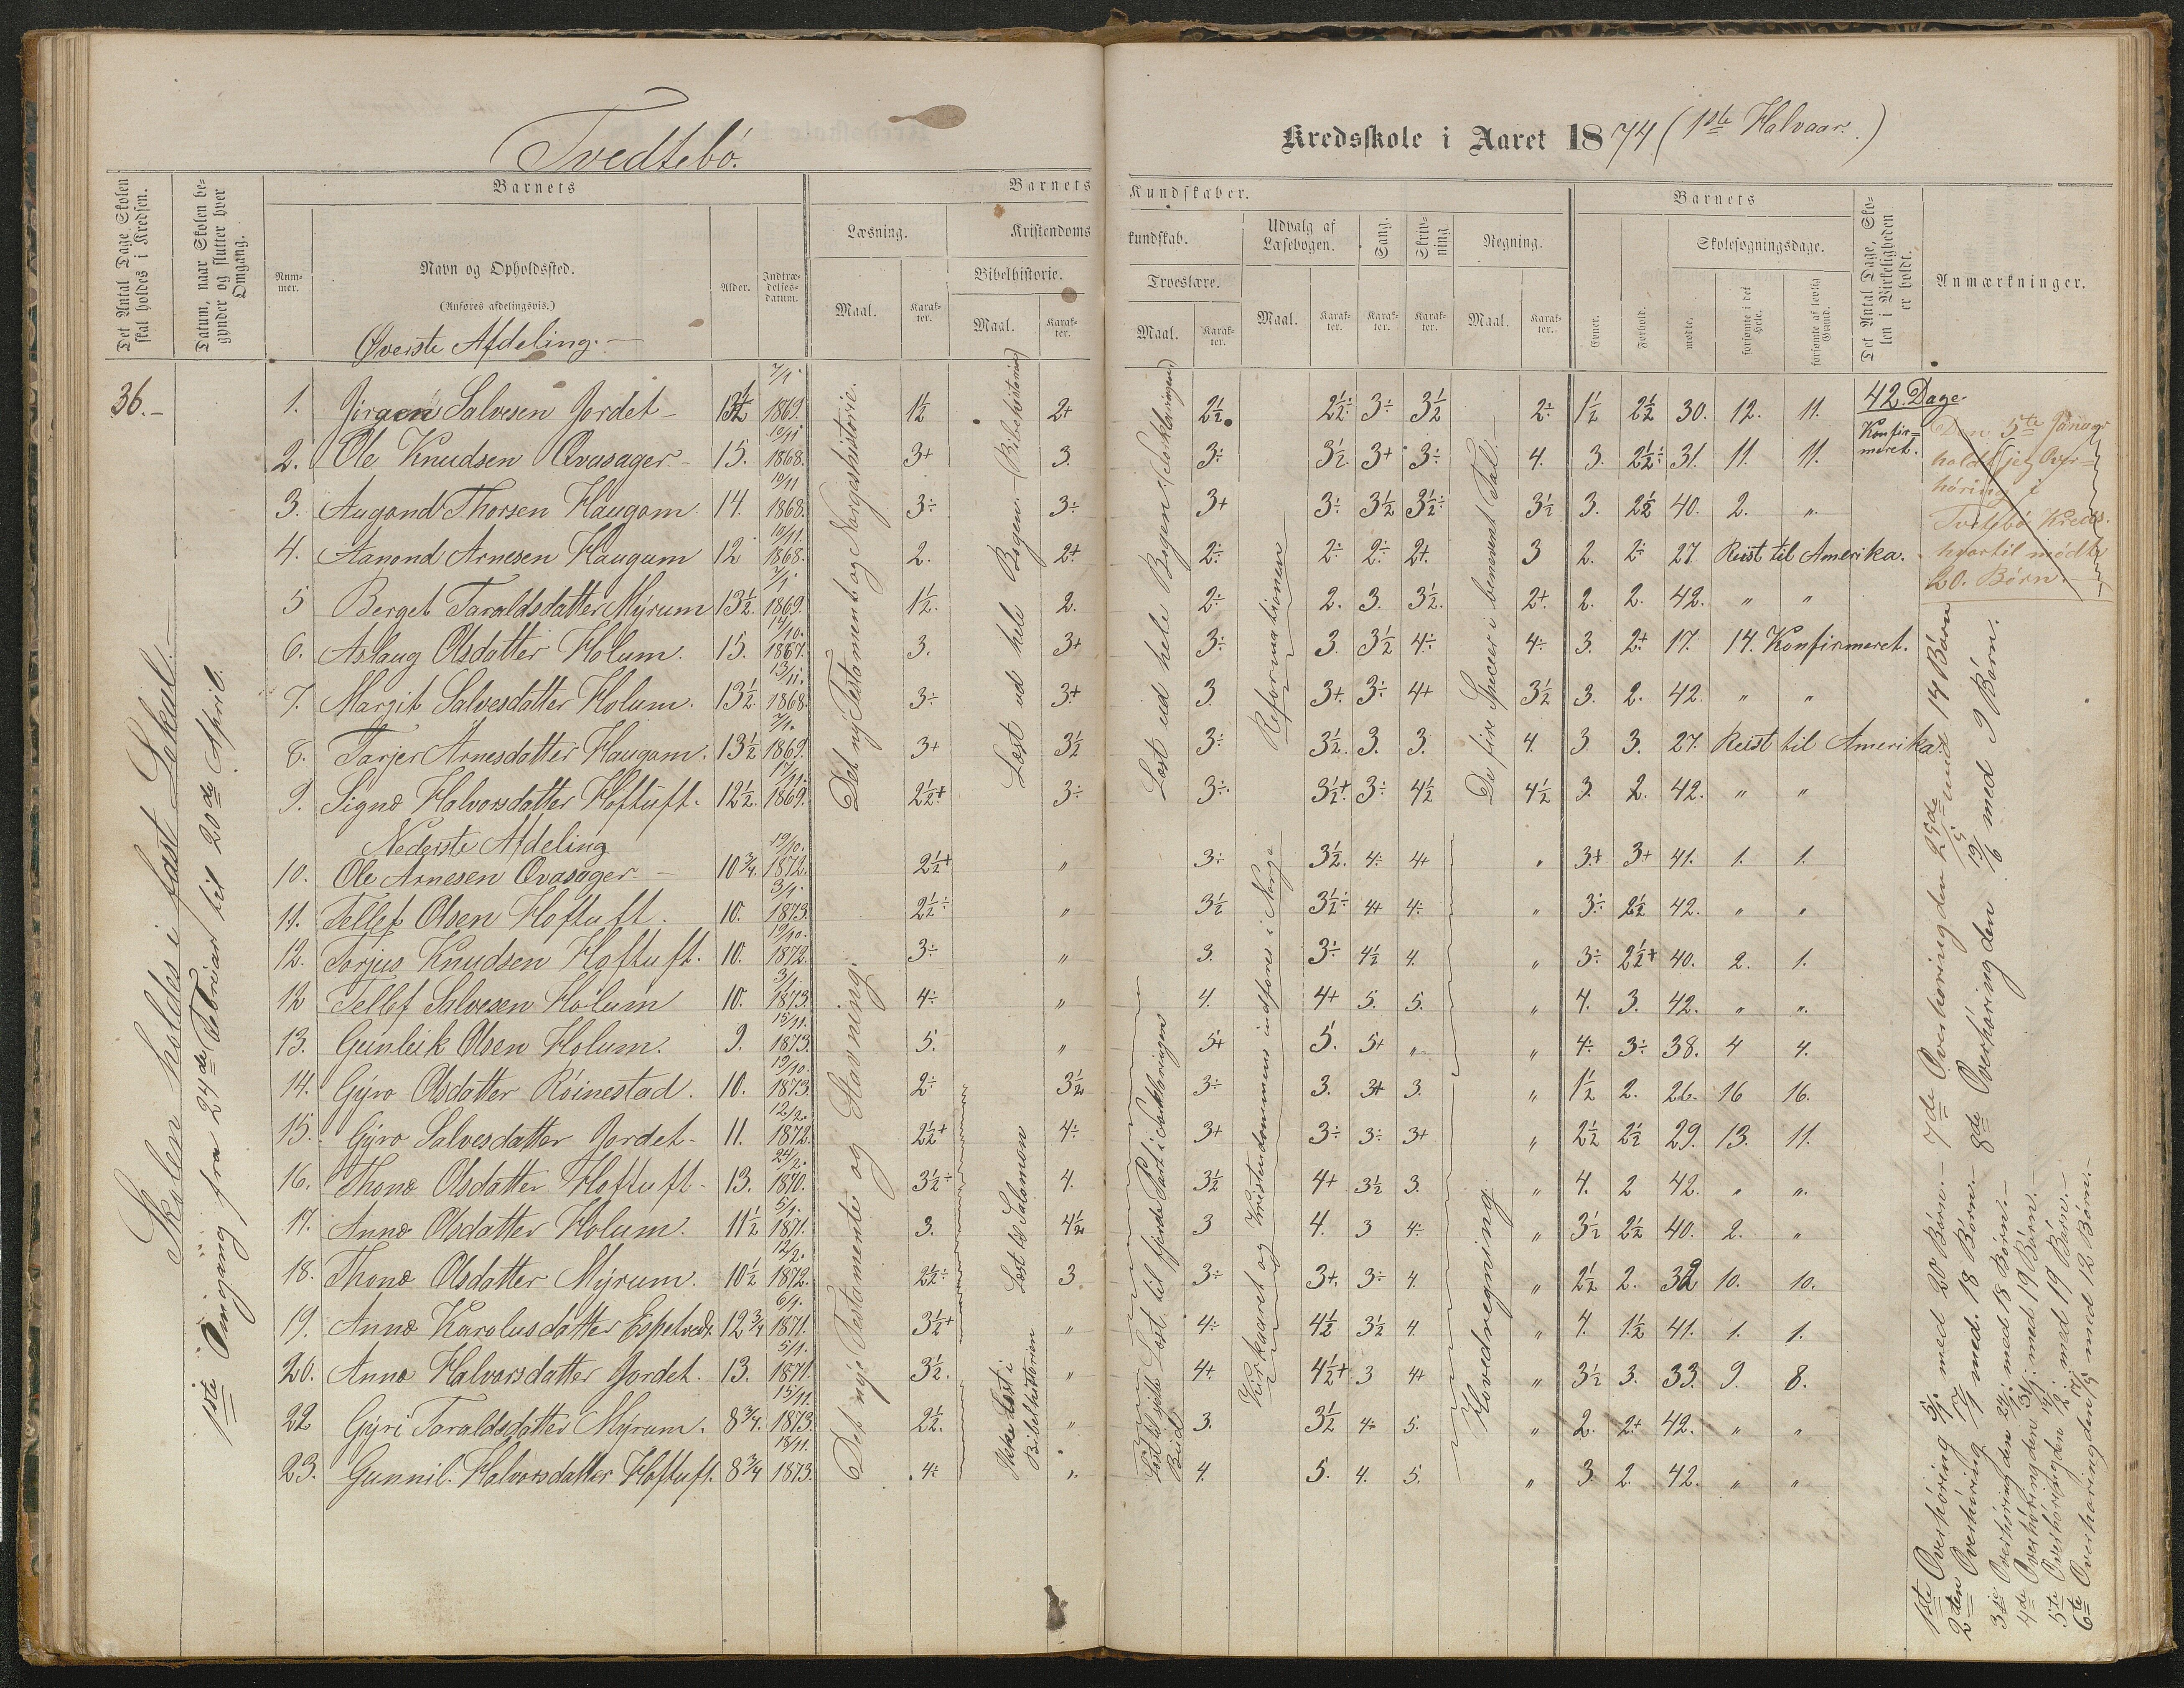 Tvedtebö.
Kredsskole i Aaret 1874 (1ste Halvaar.)
Det Antal Dage Skolen skal holdes i Kredsen.
Datum, naar Skolen begynder og slutter hver Omgang.
Barnets
Barnets
Kundskaber.
Barnets
Det Antal Dage, Skolen i Virkeligheden er holdt.
Anmærkninger.
Nummer.
Navn og Opholdssted.
(Anføres afdelingsvis.)
Alder.
Indtrædelsesdatum.
Læsning.
Kristendoms
kundskab.
Udvalg af Læsebogen.
Sang.
Skrivning.
Regning.
Skolesøgningsdage.
Bibelhistorie.
Troeslære.
Maal.
Karakter.
Maal.
Karakter.
Maal.
Karakter.
Maal.
Karakter.
Karakter.
Karakter.
Maal.
Karakter.
Evner.
Forhold.
mødte.
forsømte i det Hele.
forsømte af lovlig Grund.
Øverste Afdeling.
36.
1. Jörgen Salvesen Jordet 13½ 7/1 1869. 1½ 2+ 2½. 2½÷ 3÷ 3½ 2÷ 1½ 2½ 30. 12. 11. 42. Dage.
2. Ole Knudsen Ovasager 15. 10/11 1868. 3+ 3. 3÷ 3½ 3+ 3÷ 4. 3. 2½÷ 31. 11. 11. Konfirmeret.
3. Augond Thorsen Haugom 14. 10/11 1868. 3÷ 3÷ 3+ 3÷ 3½ 3½÷ 3½ 3. 2½ 40. 2. "
4. Aanond Arnesen Haugum 12 10/11. 1868. 2. 2+ 2÷ 2÷ 2÷ 2+. 3 2. 2÷ 27. Reist til Amerika.
5 Berget Taraldsdatter Myrum 13½. 7/1. 1869. 1½. 2. 2÷ 2. 3. 3½. 2+. 2. 2. 42. " "
6. Aslaug Olsdatter Holum. 15. 14/10. 1867. 3. 3+ 3÷ 3. 3½ 4÷ 4÷ 3. 2+ 17. 14. Konfirmeret.
7. Margit Salvesdatter Holum. 13½. 13/11. 1868. 3÷ 3+ 3. 3+. 3÷ 4+ 3½ 3. 2. 42. " "
8. Tarjer Arnesdatter Haugom. 13½ 7/1. 1869. 3+ 3½ 3÷ 3½. 3. 3. 4. 3 3. 27. Reist til Amerika.
9. Signe Halvorsdatter Hoftuft. 12½. 17/11. 1869. 2½+ 3÷ 3÷ 3½+. 3÷ 4½ 4½ 3. 2. 42. " "
Nederste Afdeling.
10. Ole Arnesen Ovasager. 10¾. 19/10. 1872. 2½+ " 3÷ 3½. 4÷ 4+ " 3+ 3+ 41. 1. 1.
11. Tellef Olsen Hoftuft. 10. 3/1. 1873. 2½÷ " 3½ 3½÷ 4+ 4÷ " 3÷ 2½ 42. " "
12. Torjus Knudsen Hoftuft. 10. 19/10. 1872. 3÷ " 3. 3÷ 4½ 4. " 3÷ 2½+ 40. 2. 1.
12 Tellef Salvesen Holum 10. 3/1. 1873. 4÷ " 4. 4+ 5. 5. " 4. 3. 42. " "
13. Gunleik Olsen Holum. 9. 15/11. 1873. 5. " 5+ 5. 5+ " " 4÷ 3÷ 38. 4 4.
14. Gyro Olsdatter Röinestad. 10. 19/10. 1873. 2÷ 3½ 3÷ 3. 3+ 3. " 1½ 2. 26. 16 16.
15. Gyro Salvesdatter Jordet. 11. 12/2. 1872. 2½+ 4÷ 3+ 3÷ 3÷ 3+ " 2½ 2½ 29. 13. 11.
16. Thone Olsdatter Hoftuft 13. 24/2. 1870. 3½÷ 4. 3½ 4+ 3½ 3. " 4. 2 42. " "
17. Anne Olsdatter Holum. 11½ 5/1. 1871. 3. 4½ 3 4. 3 4÷ " 3½ 2½ 40. 2. "
18. Thone Olsdatter Myrum. 10½ 12/2. 1872. 2½÷ 3 3÷ 3+. 3÷ 4. " 2½ 2. 32 10. 10.
19. Anne Karolusdatter Espetvedt 12¾ 6/1. 1871. 3½+ " 4÷ 4½ 3½ 4. " 4. 1½ 41. 1. 1.
20. Anne Halvorsdatter Jordet. 13. 5/1. 1871. 3½. " 4+. 4½+ 3 4+ " 3½ 3. 33. 9. 8.
22 Gyri Taraldsdatter Myrum. 8¾. 15/11. 1873. 2½. " 3. 3½ 4÷ 5. " 2. 2+ 42. " "
23. Gunnil Halvorsdatter Hoftuft. 8¾ 18/11. 1873. 4÷ " 4. 5. 4. 5. " 3. 2. 42. " "
Skolen holdes i fast Lokal.
1ste Omgang fra 24de Februar til 20de April.
Det ny Testament og Norgeshistorie.
Det nye Testamente og Stavning.
Læst ud hele Bogen. (Bibelhistorien)
Læst til Salomon
Ikke læst i Bibelhistorien
Læst ud hele Bogen. (Forklaringen)
Læst til fjerde Part i Forklaringen
Læst til sjette Bud
Reformationen
Kirkaaret og Kristendommens indføres i Norge
De fire Specier i benevnt Tal.
Hovedregning
Den 5te Januar
holdtes Over-
höring i
Tvetsbö Kreds.
hvortil mödte
20. Börn.
1ste Overhöring 5/1 med 20 Börn.
2den Overhöring 17/1 med 18 Börn.
3die Overhöring den 24/1 med 18 Börn.
4de Overhöringen den 31/1 med 19 Börn.
5te Overhöringen den med 19 Börn.
6te Overhöringen den med 12 Börn.
7de Overhöring den 29de/5 med 14 Börn
8de Overhöring den 19/6 med 9 Börn.